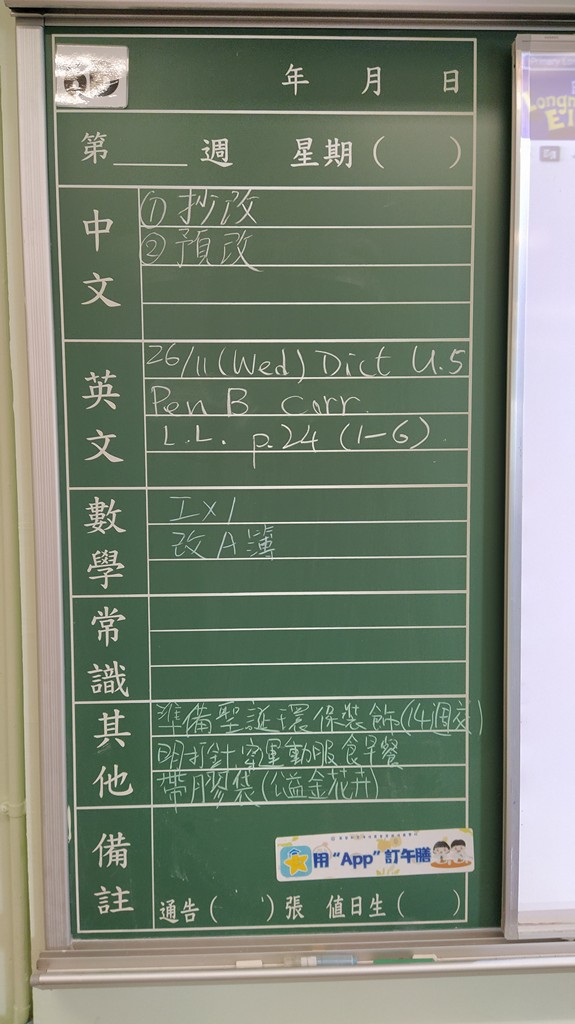 年 月 日
第____週 星期( )
中文
① 抄改
② 預改
英文
26/11 (Wed) Dict U.5
Pen B Corr.
L.L. p.24 (1-6)
數學
工x1
改A簿
常識
其他
準備聖誕環保裝飾(14週交)
明打針,穿運動服食早餐
帶膠袋(公益金花卉)
備註
用"App"訂午膳
通告( )張 值日生( )
Longm
E